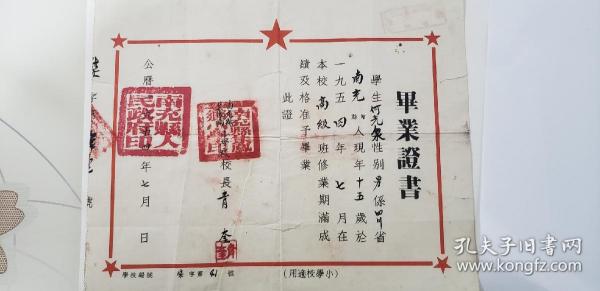 畢業證書
學生何光泉性别男係四川省
南充縣人現年十五歲於
一九五四年七月在
本校高級班修業期滿成
績及格准予畢業
此證
校長青
南充縣人民政府印
公曆一九五四年七月 日
(小學校適用)
學校編號 字第41號
孔夫子旧书网
www.kongfz.com